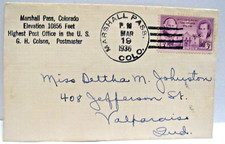 Marshall Pass, Colorado
Elevation 10856 Feet
Highest Post Office in the U. S.
G. H. Colson, Postmaster
MARSHALL PASS.
P M
MAR
19
1936
COLO.
Miss Deltha M. Johnston
408 Jefferson St.
Valparaiso
Ind.